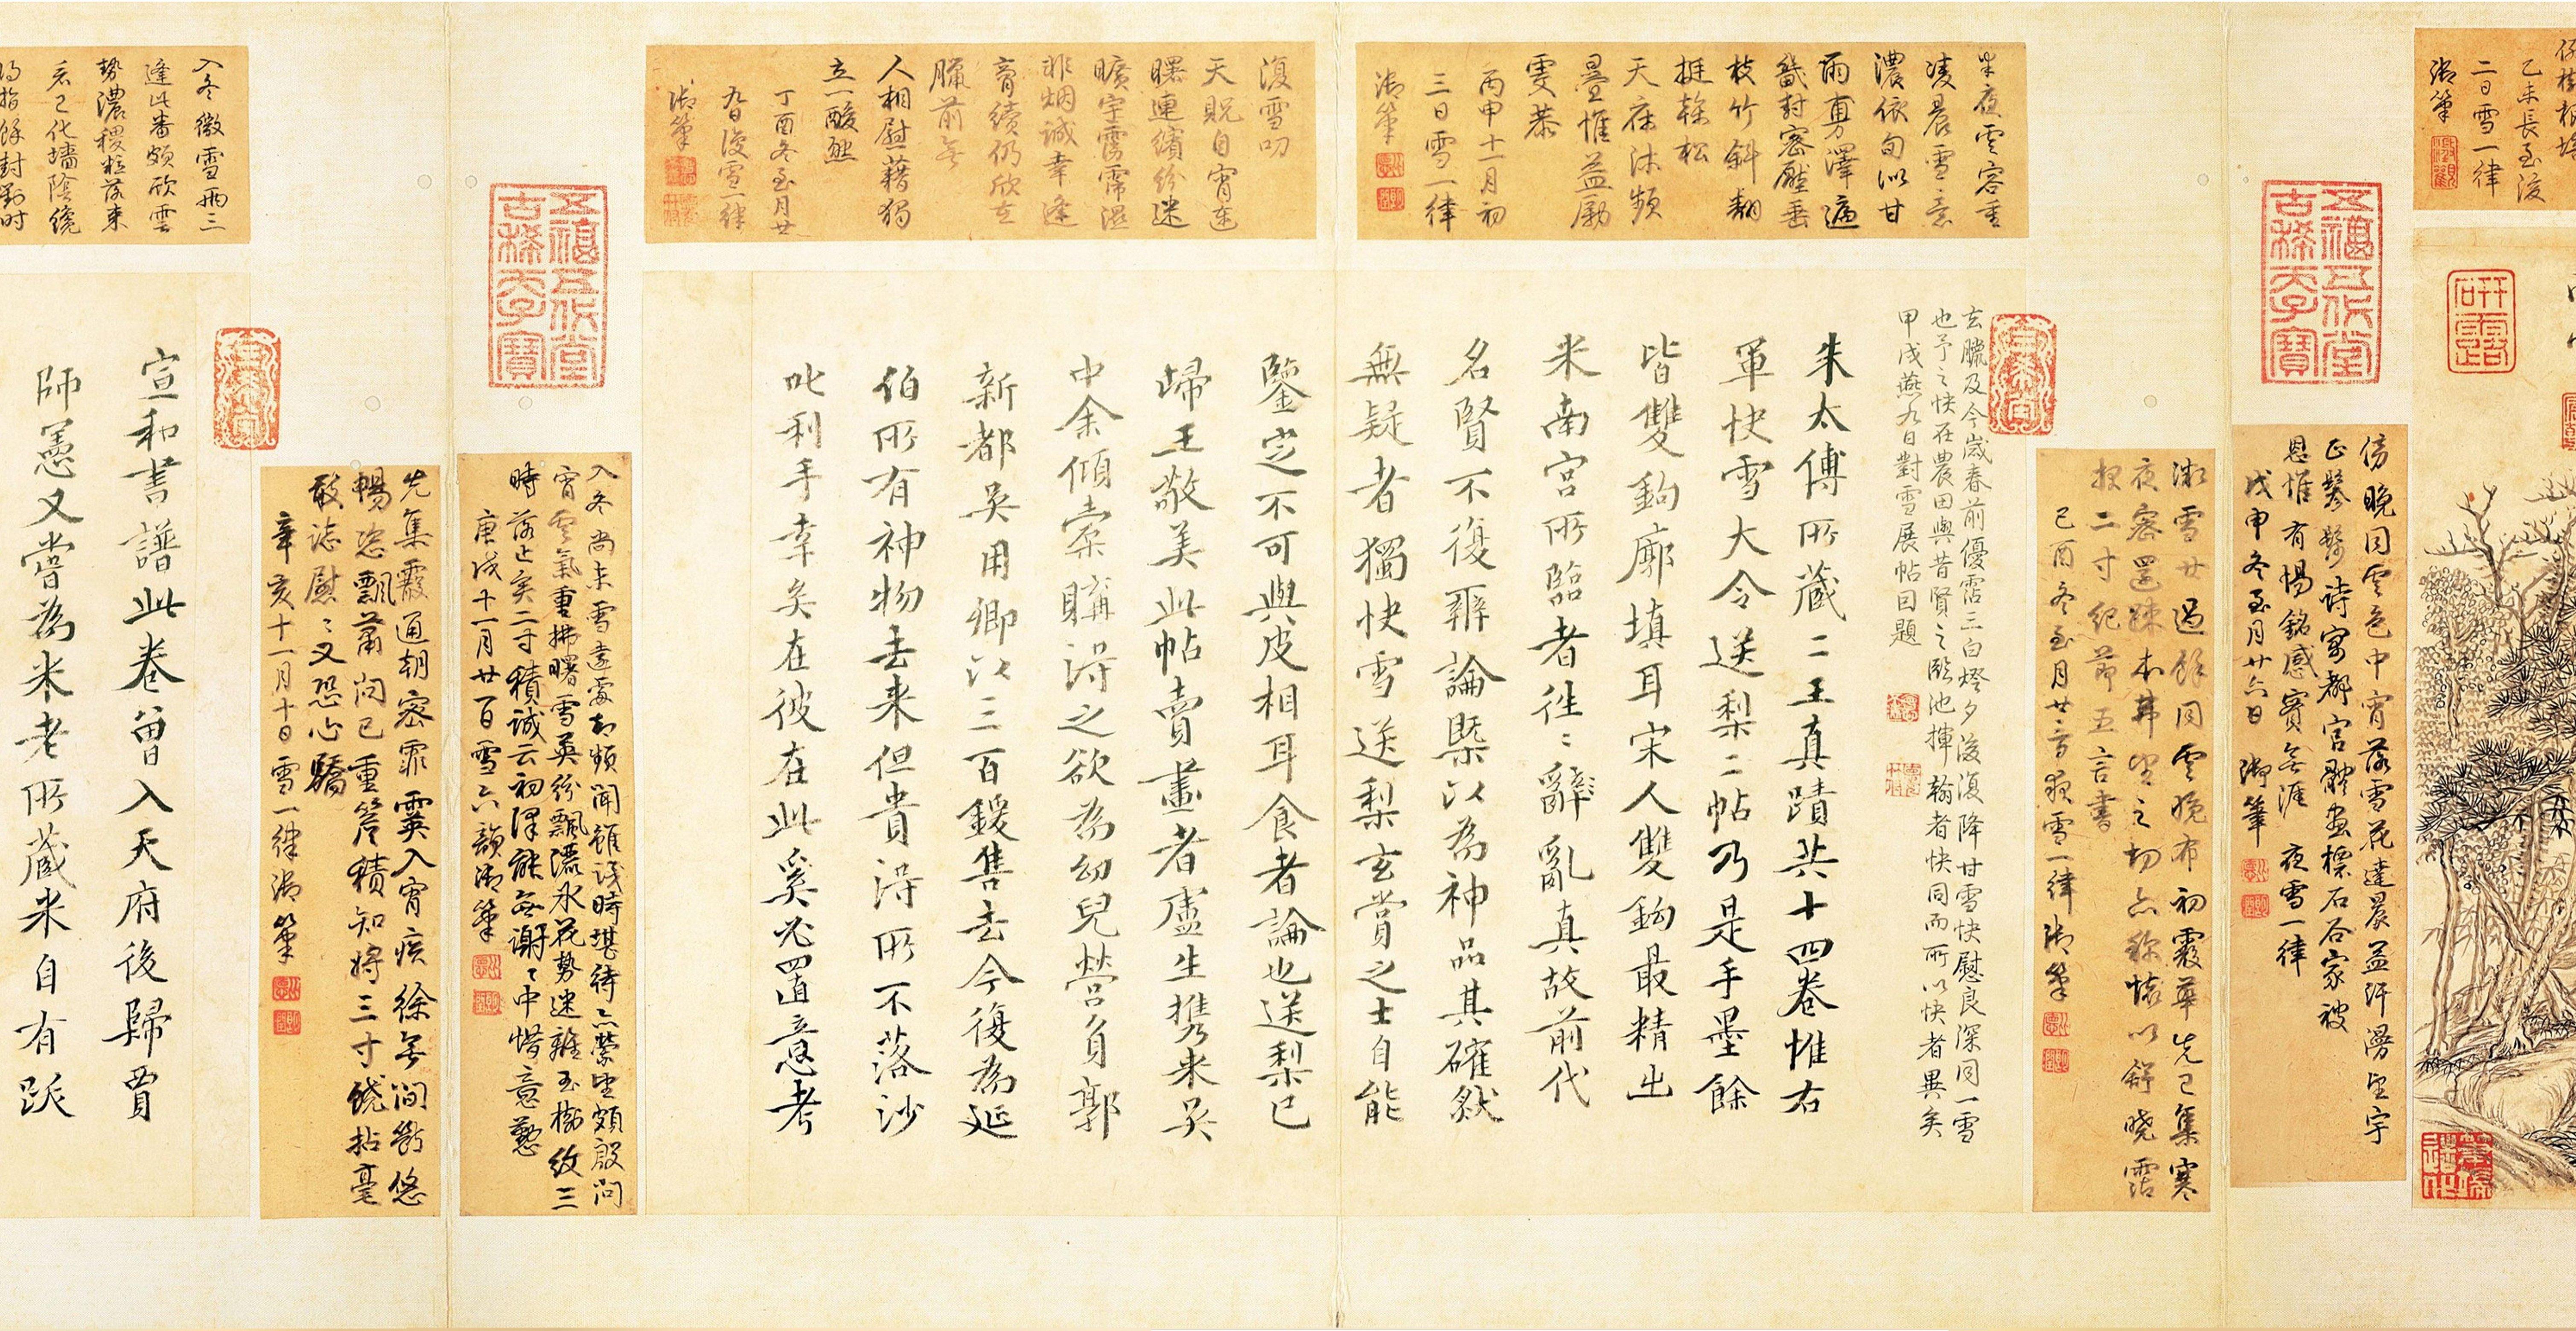 乙未長至後
二日雪一律
御筆
傍晚同雲色中宵落雪花達晨益汗漫望宇
正鬖影詩寧都官體畫標石谷家被
恩惟有惕銘感實無涯 夜雪一律
戊申冬至月廿六日 御筆
半夜雲容重
凌晨雪意
濃依旬似甘
雨
封密壓垂
枝竹斜翻
挺幹松
天庥沐頻
疊惟益勵
雯恭
丙申十一月初
三日雪一律
御筆
復雪叨
天貺自宵連
曙連繽紛迷
曠宇霑霈溼
非烟誠幸逢
膏續仍欣在
臘前無
人相慰藉獨
立一酸然
丁酉冬至月廿
九日復雪一律
御筆
入冬微雪兩三
逢此番頗欣雲
勢濃稷粒落來
看已化墻陰繞
得指餘封對時
五福五代堂
古稀天子寶
微雪廿過餘同雲晚布初霰華先已集寒
夜密還疎本弗望之切亦聊懷以舒曉霑
報二寸紀節五言書
己酉冬至月廿 夜雪一律御筆
玄臘及今歲春前優霑三白燈夕後復降甘雪快慰良深同一雪
也予之快在農田與昔賢之臨池揮翰者快同而所以快者異矣
甲戌燕九日對雪展帖因題
朱太傅所藏二王真蹟共十四卷惟右
軍快雪大令送梨二帖乃是手墨餘
皆雙鉤廓填耳宋人雙鉤最精出
米南宮所臨者往々辭亂真故前代
名賢不復辨論槩以為神品其確然
無疑者獨快雪送梨玄賞之士自能
鑒定不可與皮相耳食者論也送梨已
歸王敬美此帖賣畫者盧生攜來吳
中余傾橐購得之欲為幼兒營負郭
新都吳用卿以三百鍰售去今復為延
伯所有神物去來但貴得所不落沙
叱利手幸矣在彼在此奚必置意考
五福五代堂
古稀天子寶
入冬尚未雪遠處却頻聞雖淺時堪待亦縈望頗殷問
宵雲氣重拂曙雪英紛飄灑氷花勢迷離玉樹紋三
時落止矣二寸積誠云初澤能無謝々中惜意懃
庚戌十一月廿一日雪六韻御筆
先集霰通朝密霏霙入宵疾徐無間斷悠
暢恣飄蕭問已重簷積知將三寸饒拈毫
敢誌慰々又恐心驕
辛亥十一月十日雪一律御筆
宣和書譜此卷曾入天府後歸賈
師憲又嘗為米老所藏米自有跋